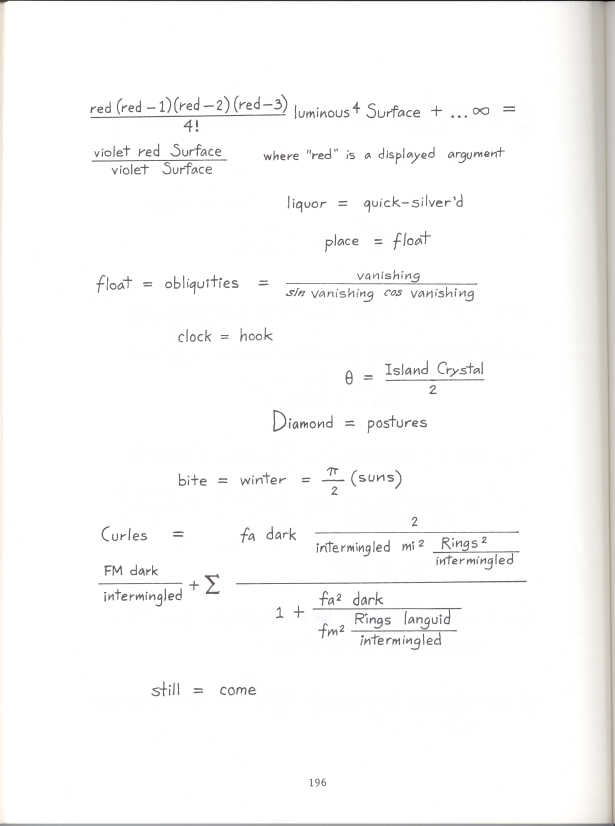 red (red – 1)(red – 2)(red – 3)
4!
luminous⁴ Surface + ... ∞ =
violet red Surface
violet Surface
where "red" is a displayed argument
liquor = quick-silver'd
place = float
float = obliquities =
vanishing
sin vanishing cos vanishing
clock = hook
θ =
Island Crystal
2
Diamond = postures
bite = winter = π/2 (suns)
Curles =
FM dark
intermingled
+ Σ
fa dark
2
intermingled mi²
Rings²
intermingled
1 +
fa² dark
fm²
Rings languid
intermingled
still = come
196